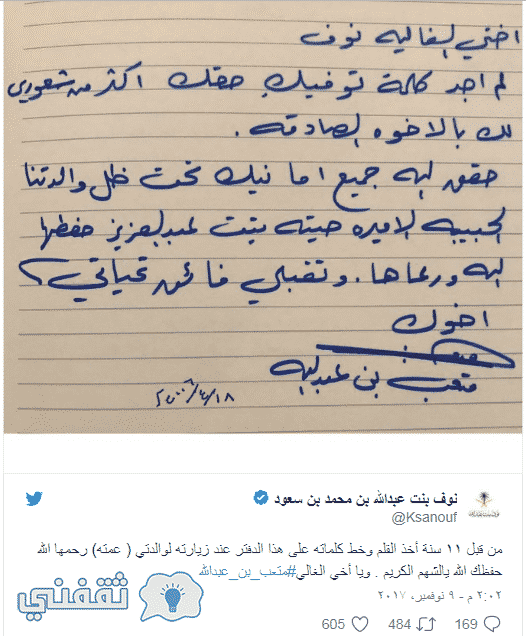 اختي الغاليه نوف
لم اجد كلمة توفيك حقك اكثر من شعوري
لك بالاخوه الصادقه .
حقق الله جميع امانيك تحت ظل والدتنا
الحبيبه الاميره صيته بنت عبدالعزيز حفظها
الله ورعاها . وتقبلي فائق تحياتي ،
اخوك
متعب بن عبدالله
٢٠٠٦/٤/١٨
نوف بنت عبدالله بن محمد بن سعود
@Ksanouf
من قبل ١١ سنة أخذ القلم وخط كلماته على هذا الدفتر عند زيارته لوالدتي ( عمته) رحمها الله
حفظك الله يالشهم الكريم . ويا أخي الغالي#متعب_بن_عبدالله
٢:٠٢ م - ٩ نوفمبر، ٢٠١٧
169 484 605
ثقفني